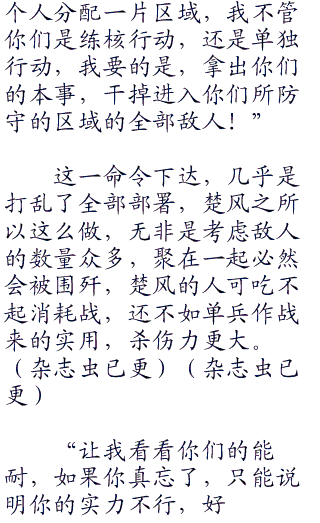 个人分配一片区域，我不管
你们是练核行动，还是单独
行动，我要的是，拿出你们
的本事，干掉进入你们所防
守的区域的全部敌人！”
这一命令下达，几乎是
打乱了全部部署，楚风之所
以这么做，无非是考虑敌人
的数量众多，聚在一起必然
会被围歼，楚风的人可吃不
起消耗战，还不如单兵作战
来的实用，杀伤力更大。
（杂志虫已更）（杂志虫已
更）
“让我看看你们的能
耐，如果你真忘了，只能说
明你的实力不行，好